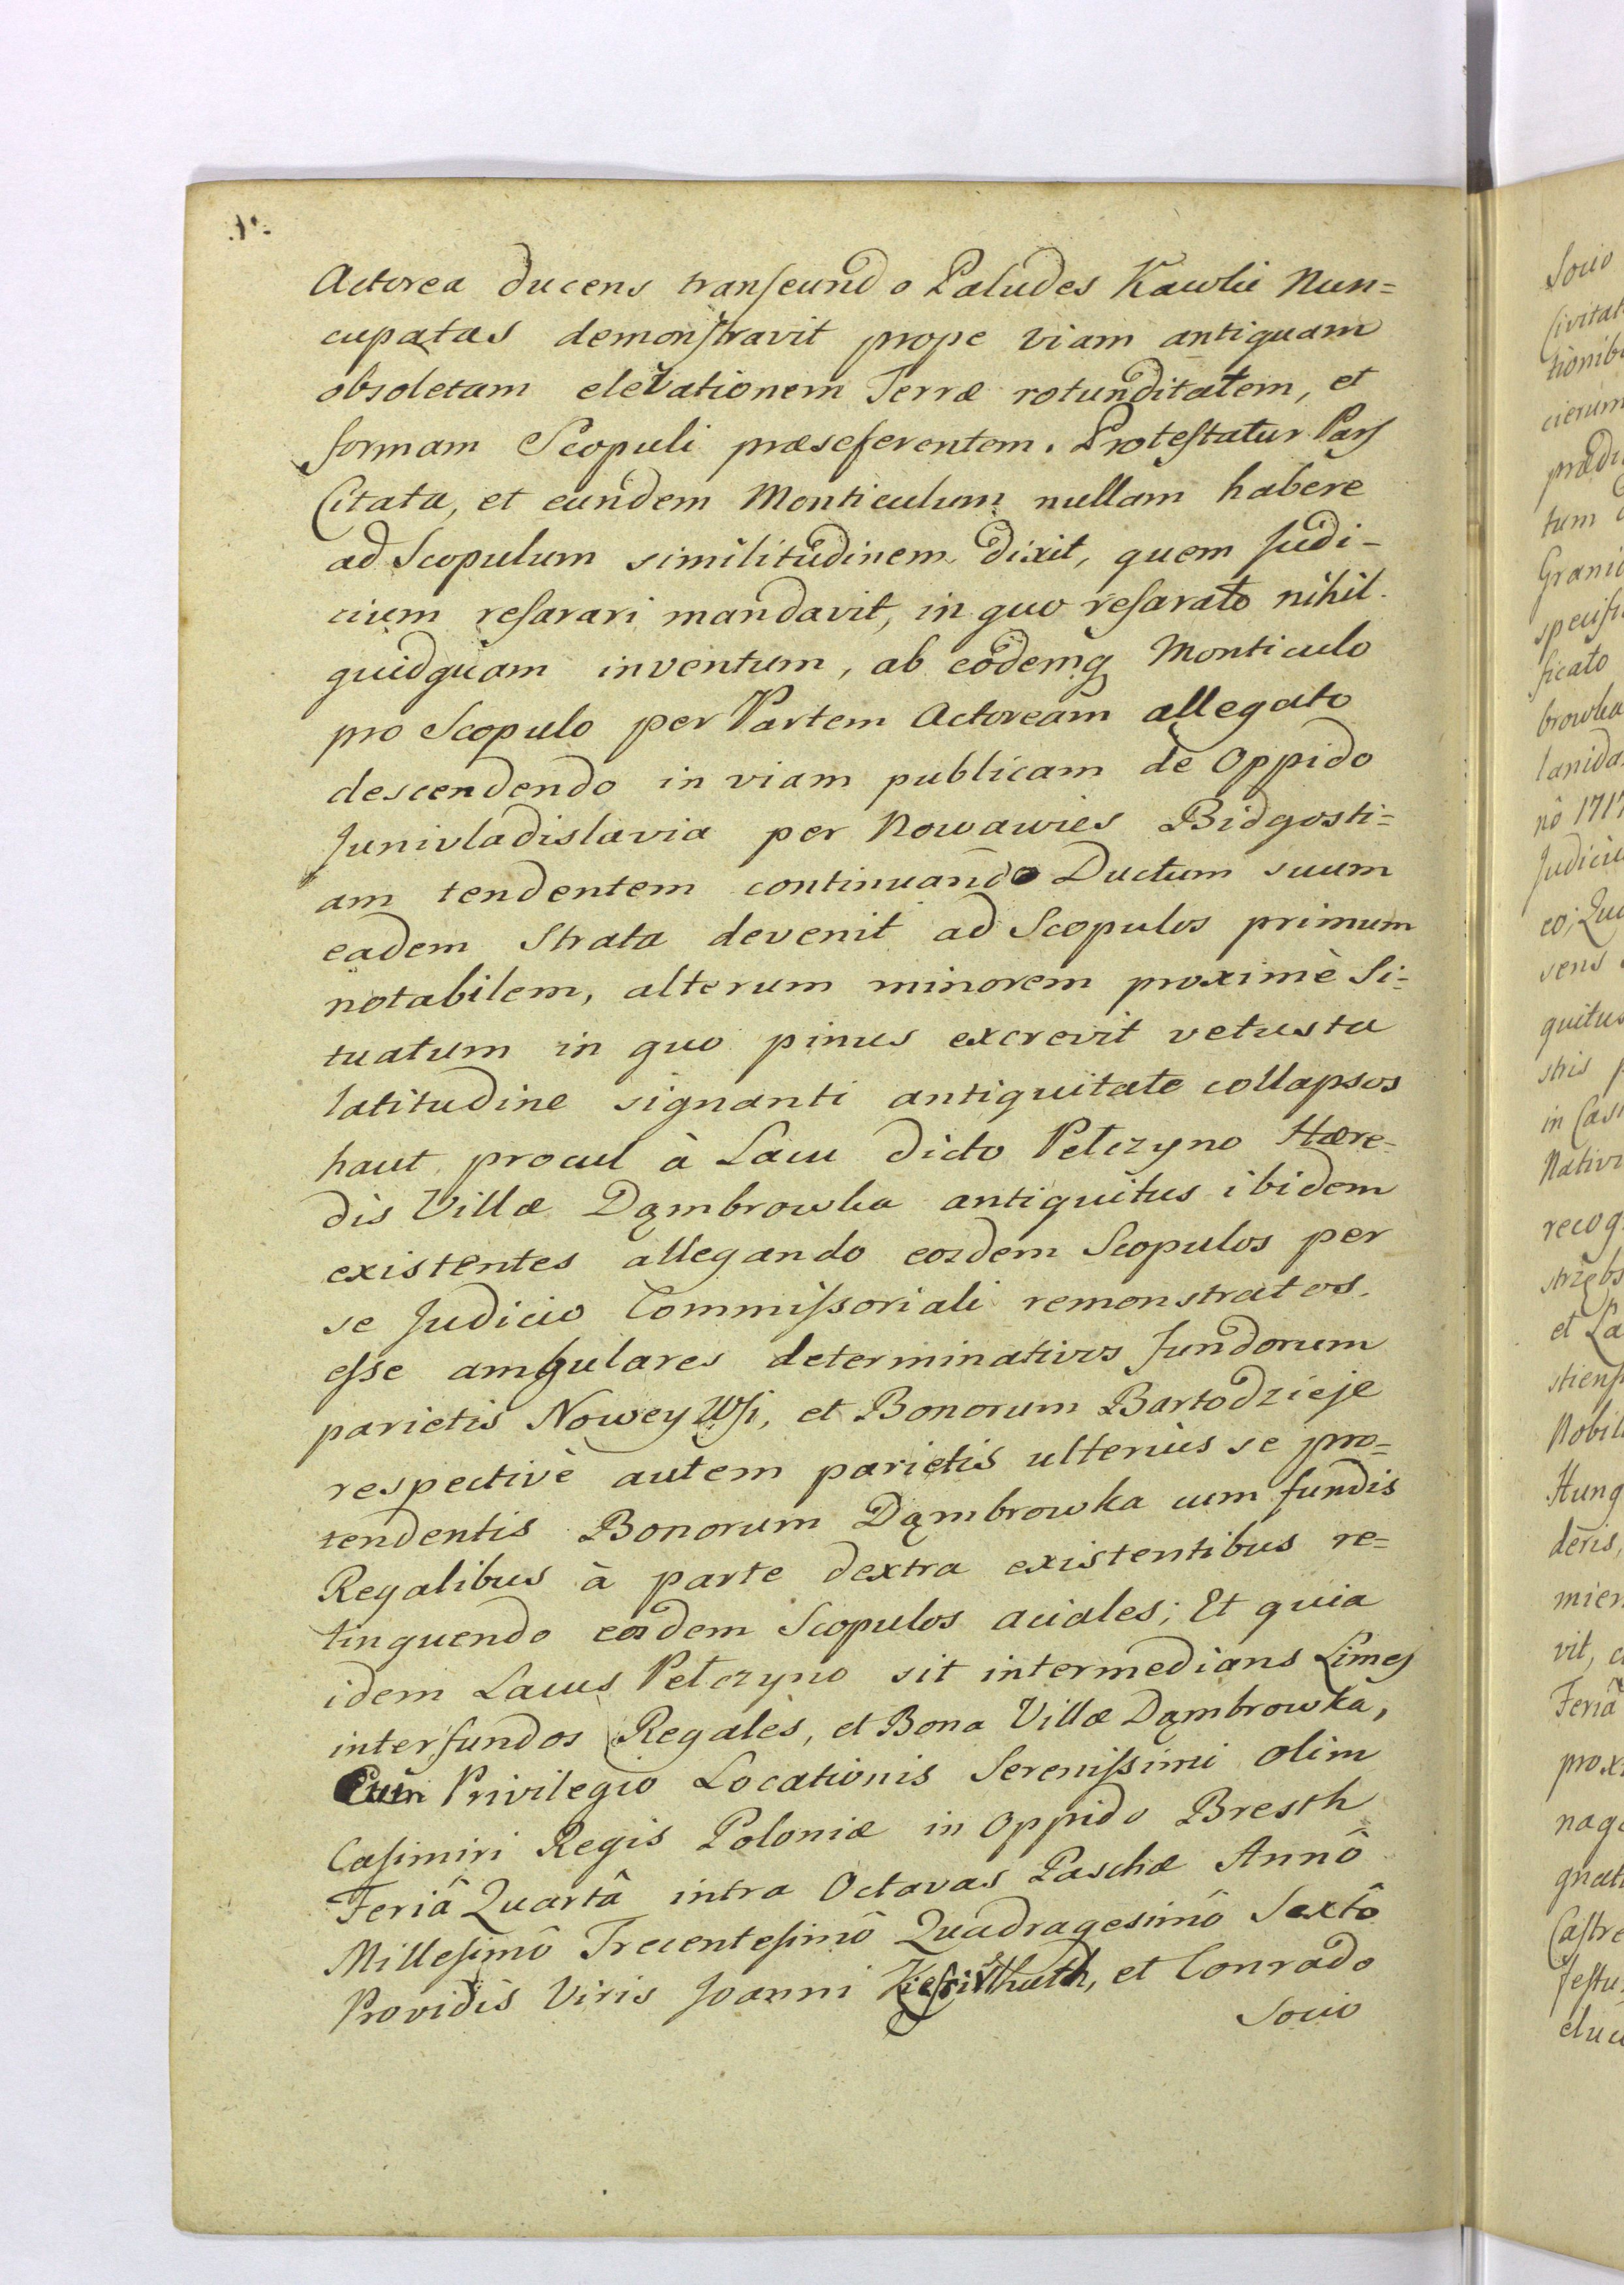 Actorea ducens transeundo Paludes Kawlie Nun=
cupatas demonstravit prope viam antiquam
obsoletam elevationem Terræ rotunditatem, et
formam Scopuli præseferentem. Protestatur Pars
Citata, et eundem Monticulum nullam habere
ad Scopulum similitudinem dixit, quem Judi-
cium resarari mandavit, in quo resarato nihil
quidquam inventum, ab eodemq Monticulo
pro Scopulo per Partem Actoream allegato
descendendo in viam publicam de Oppido
Junivladislavia per Nowawies Bidgosti=
am tendentem continuando Ductum suum
eadem Strata devenit ad Scopulos primum
notabilem, alterum minorem proximè Si=
tuatum in quo pinus excrevit vetusta
latitudine signanti antiquitate collapsos
haut procul à Lacu dicto Pełczyno Hære-
dis Villæ Dąmbrowka antiquitus ibidem
existentes allegando eosdem Scopulos per
se Judicio Commissoriali remonstratos.
esse angulares determinativos fundorum
parietis Nowey Wsi, et Bonorum Bartodzieje
respectivè autem parietis ulterius se pro=
tendentis Bonorum Dąmbrowka cum fundis
Regalibus à parte dextra existentibus re=
linquendo eosdem Scopulos aciales; Et quia
idem Lacus Pełczyno sit intermedians Limes
inter fundos Regales, et Bona Villæ Dąmbrowka,
Cum Privilegio Locationis Serenissimi olim
Casimiri Regis Poloniæ in Oppido Bresth
Feriâ Quartâ intra Octavas Paschæ Annô
Millesimô Trecentesimô Quadragesimô Sextô
Providis Viris Joanni et Conrado
Socio